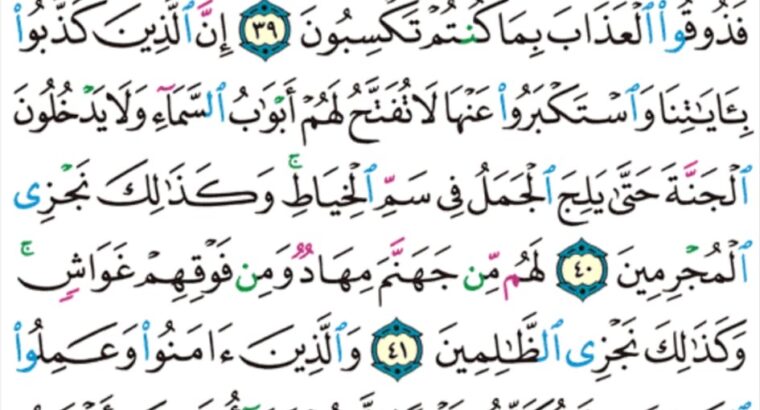 فَذُوقُوا۟ ٱلْعَذَابَ بِمَا كُنتُمْ تَكْسِبُونَ ٣٩ إِنَّ ٱلَّذِينَ كَذَّبُوا۟
بِـَٔايَـٰتِنَا وَٱسْتَكْبَرُوا۟ عَنْهَا لَا تُفَتَّحُ لَهُمْ أَبْوَٰبُ ٱلسَّمَآءِ وَلَا يَدْخُلُونَ
ٱلْجَنَّةَ حَتَّىٰ يَلِجَ ٱلْجَمَلُ فِى سَمِّ ٱلْخِيَاطِ ۚ وَكَذَٰلِكَ نَجْزِى
ٱلْمُجْرِمِينَ ٤٠ لَهُم مِّن جَهَنَّمَ مِهَادٌ وَمِن فَوْقِهِمْ غَوَاشٍ ۚ
وَكَذَٰلِكَ نَجْزِى ٱلظَّـٰلِمِينَ ٤١ وَٱلَّذِينَ ءَامَنُوا۟ وَعَمِلُوا۟